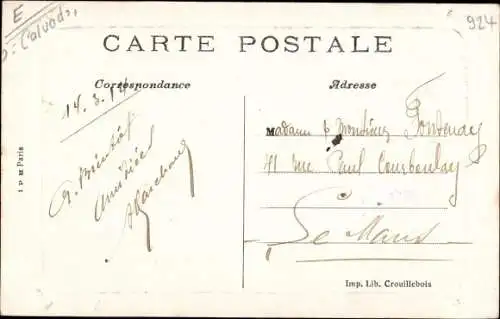 E
D: Calvados
924
CARTE POSTALE
Correspondance
Adresse
14.3.14
A Bientôt
Amitiés
Madame & Monsieur
41 rue Paul Courboulay
Le Mans
Imp. Lib. Crouillebois
Paris